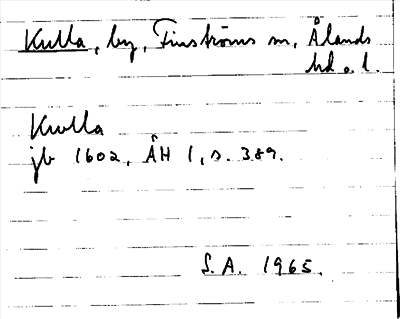 Kulla, by, Finströms sn, Ålands
hd o. l.
Kulla
jb 1602, ÅH 1, s. 389.
S.A. 1965.